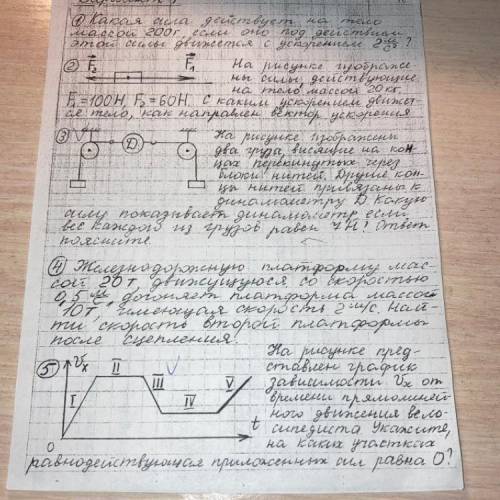 ① Какая сила действует на тело
массой 200г, если оно под действием
этой силы движется с ускорением 2 м/с²?
② F₂ F₁ На рисунке изображе-
ны силы, действующие
на тело массой 20кг.
F₁=100Н, F₂=60Н. С каким ускорением движет-
ся тело, как направлен вектор ускорения
③ На рисунке изображены
Д два груза, висящие на кон-
цах перекинутых через
блоки нитей. Другие кон-
цы нитей привязаны к
динамометру Д. Какую
силу показывает динамометр если
вес каждого из грузов равен 7Н? Ответ
поясните.
④ Железнодорожную платформу мас-
сой 20т, движущуюся со скоростью
0,5 м/с догоняет платформа массой
10т, имеющая скорость 2 м/с. Най-
ти скорость второй платформы
после сцепления.
⑤ Vx На рисунке пред-
ставлен график
зависимости Vx от
времени прямолиней-
ного движения вело-
сипедиста Укажите,
на каких участках
I II III IV V
0 t
равнодействующая приложенных сил равна 0?